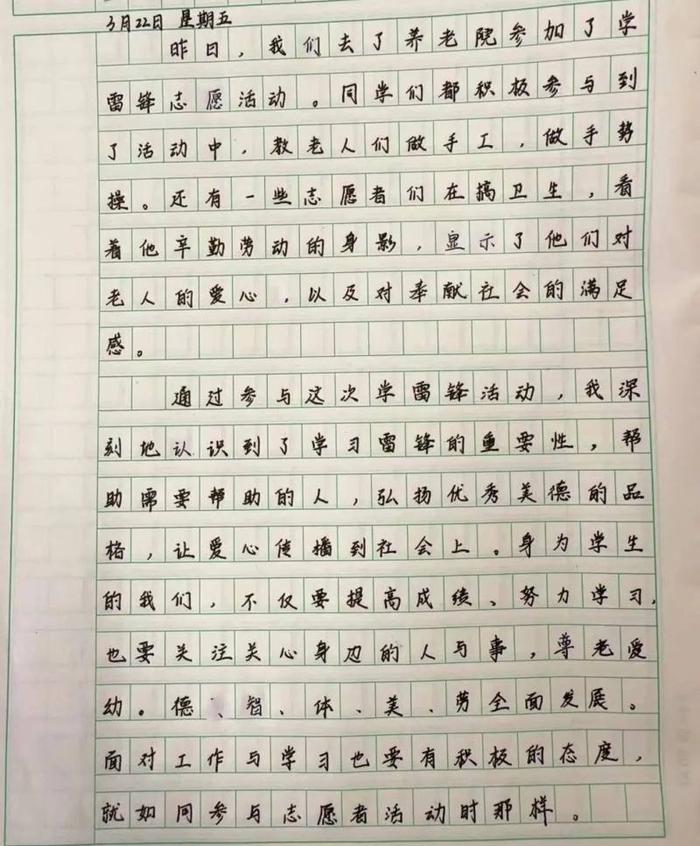 3月22日 星期五
昨日，我们去了养老院参加了学
雷锋志愿活动。同学们都积极参与到
了活动中，教老人们做手工，做手势
操。还有一些志愿者们在搞卫生，看
着他辛勤劳动的身影，显示了他们对
老人的爱心，以及对奉献社会的满足
感。
通过参与这次学雷锋活动，我深
刻地认识到了学习雷锋的重要性，帮
助需要帮助的人，弘扬优秀美德的品
格，让爱心传播到社会上。身为学生
的我们，不仅要提高成绩、努力学习，
也要关注关心身边的人与事，尊老爱
幼。德、智、体、美、劳全面发展。
面对工作与学习也要有积极的态度，
就如同参与志愿者活动时那样。